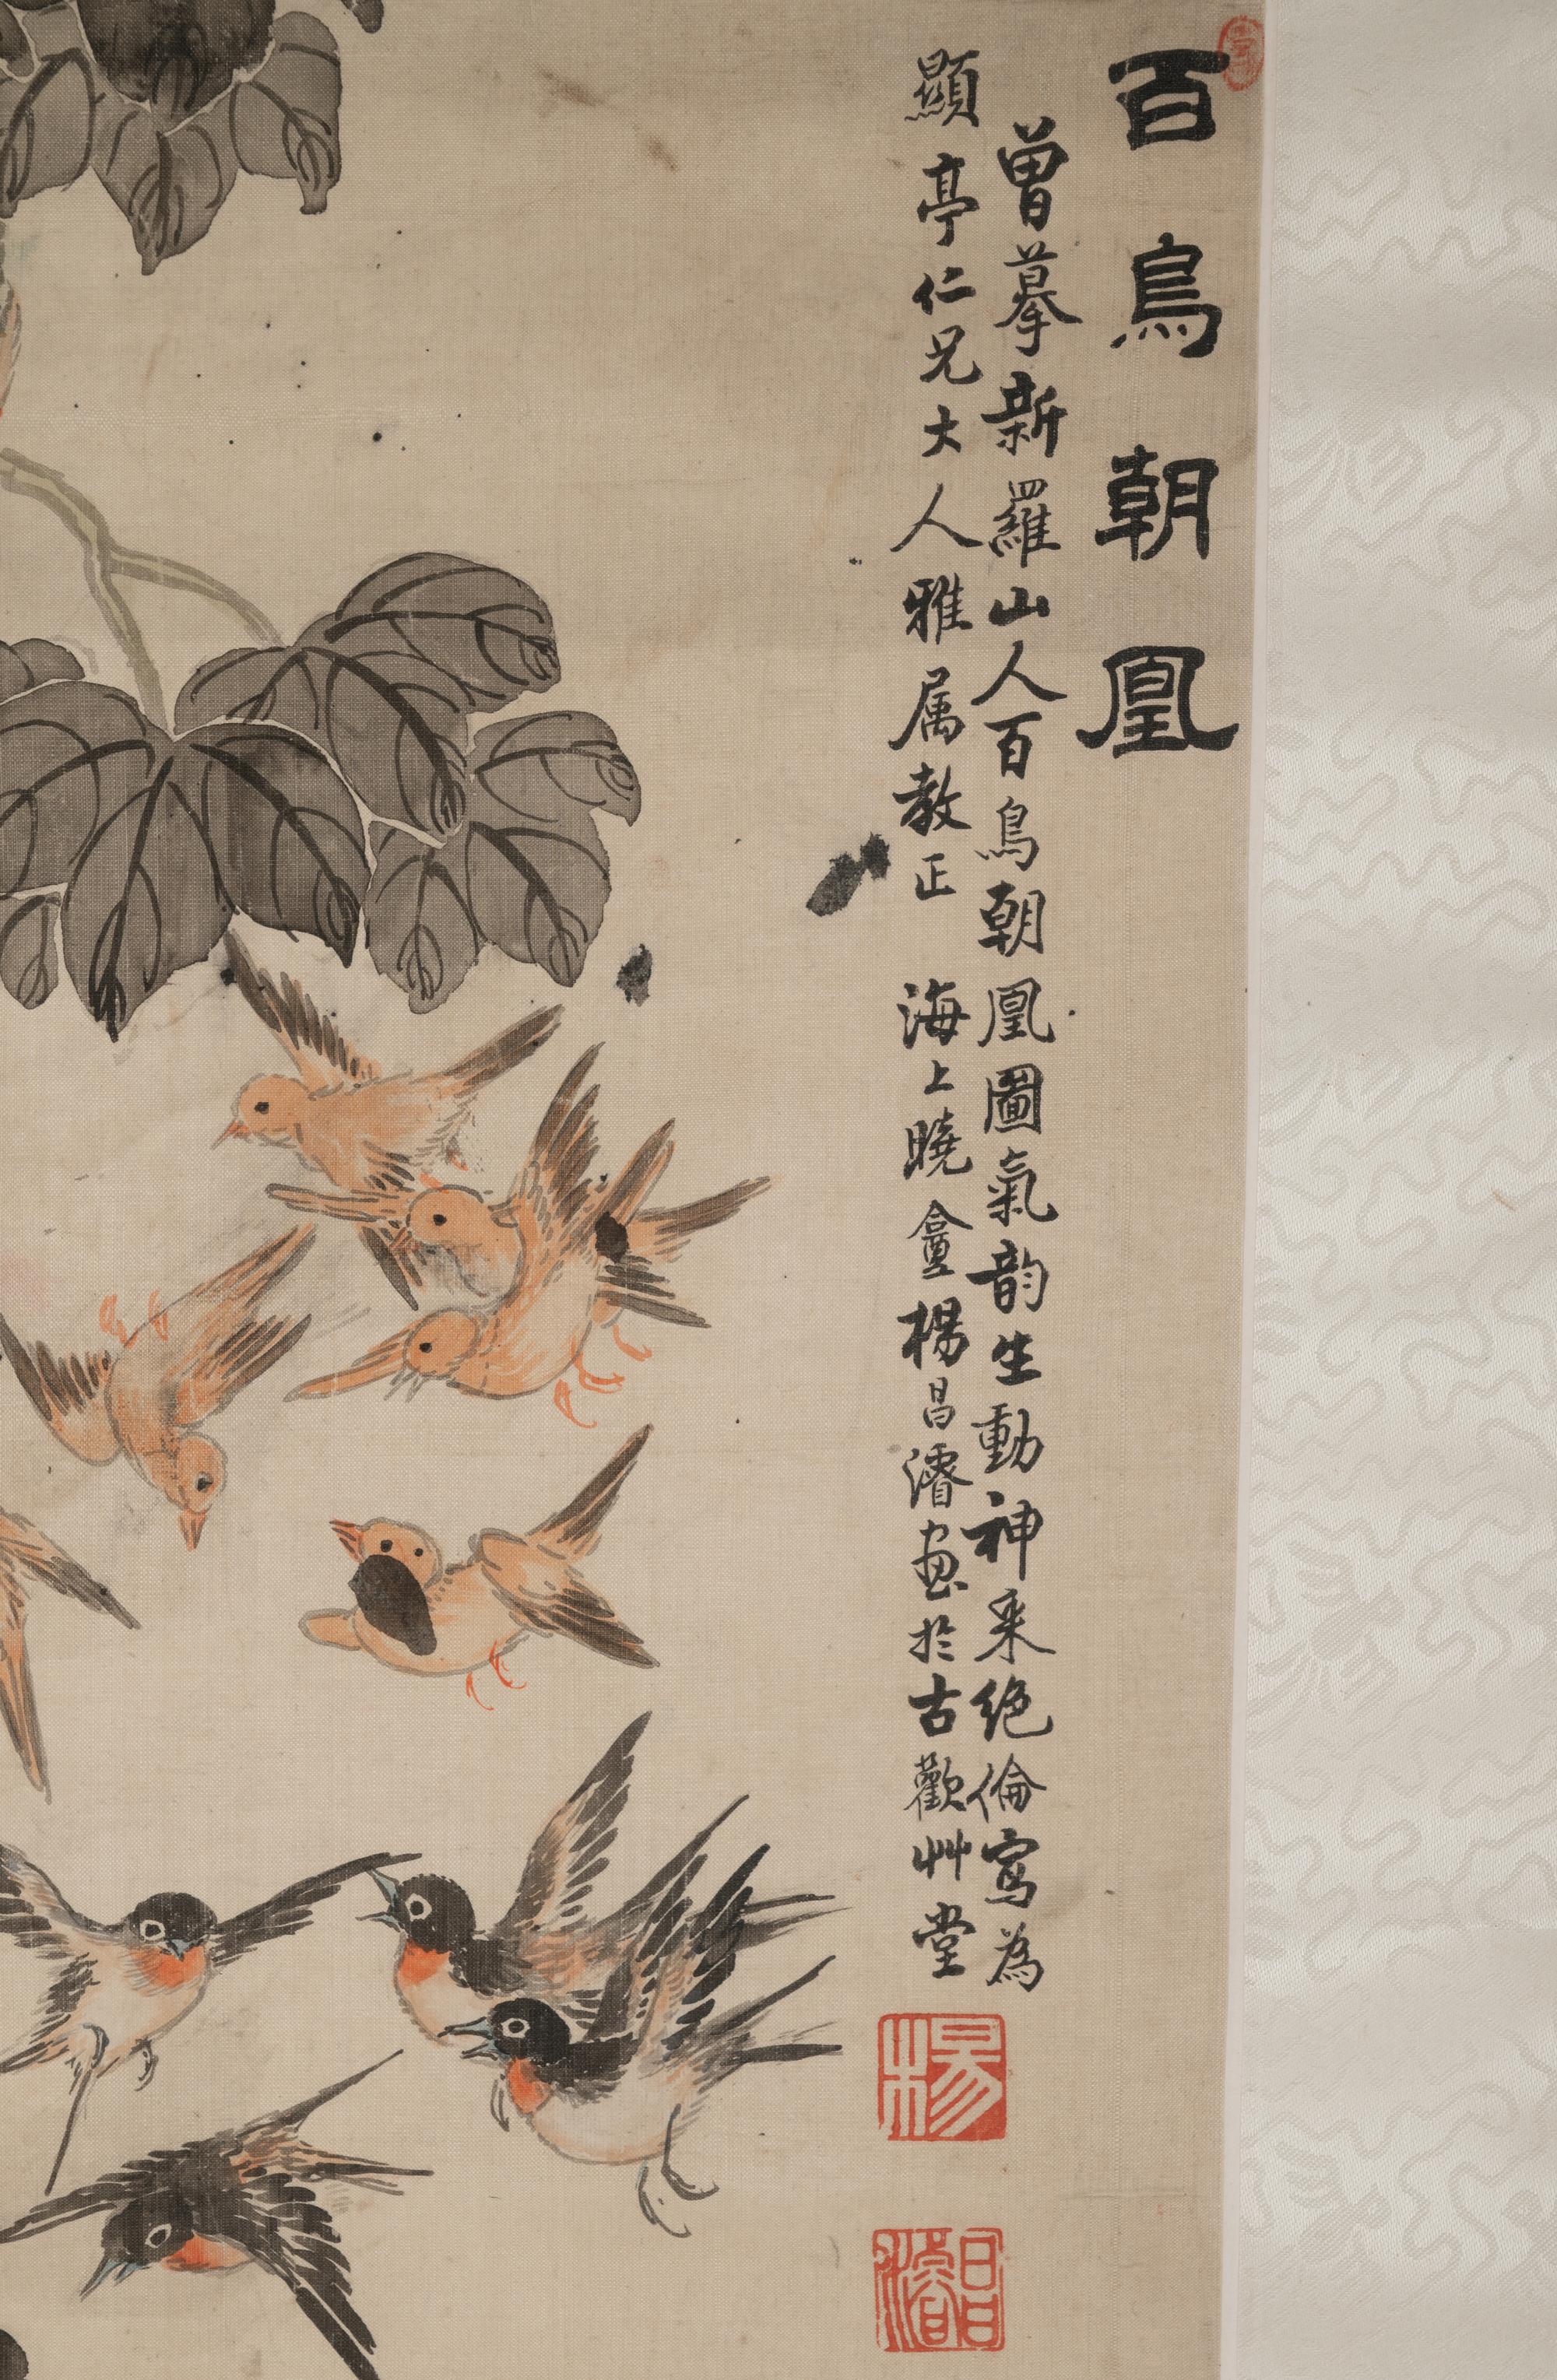 百鳥朝凰
曾摹新羅山人百鳥朝凰圖氣韵生動神采絶倫寫為
顯亭仁兄大人雅属教正 海上曉盦楊昌濬畫於古歡艸堂
楊
昌濬